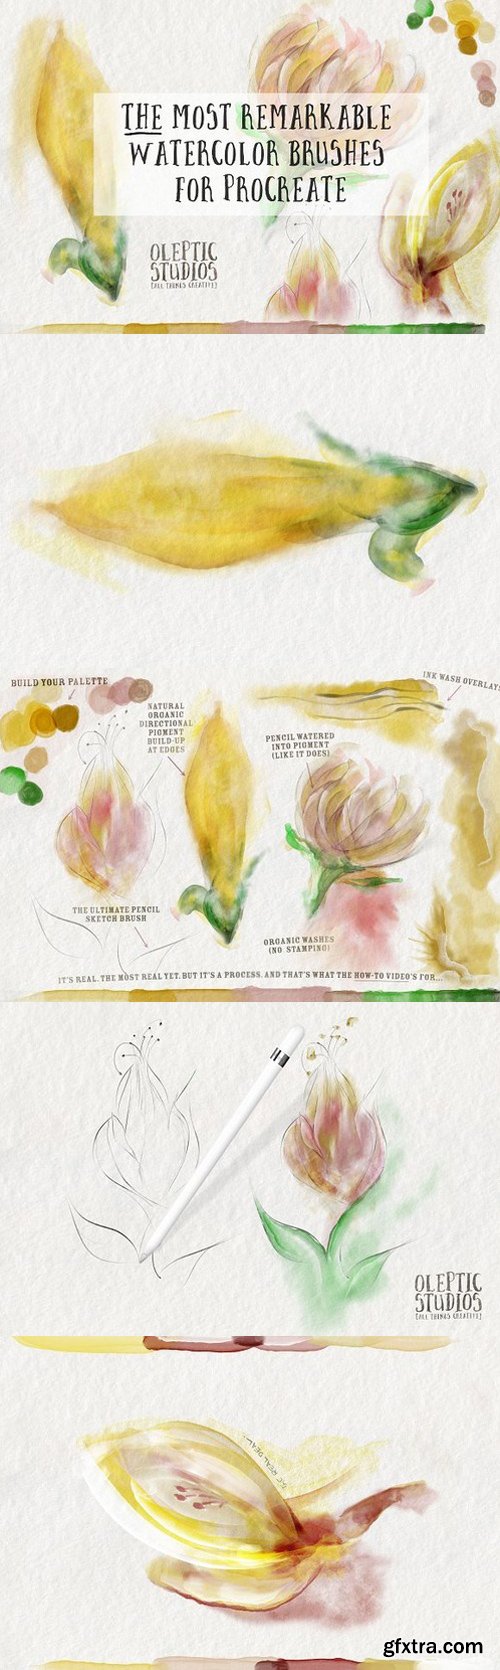 THE MOST REMARKABLE
WATERCOLOR BRUSHES
FOR PROCREATE
OLEPTIC
STUDIOS
[ALL THINGS CREATIVE]
BUILD YOUR PALETTE
NATURAL
ORGANIC
DIRECTIONAL
PIGMENT
BUILD-UP
AT EDGES
INK WASH OVERLAYS
PENCIL WATERED
INTO PIGMENT
(LIKE IT DOES)
THE ULTIMATE PENCIL
SKETCH BRUSH
ORGANIC WASHES
(NO STAMPING)
IT'S REAL. THE MOST REAL YET. BUT IT'S A PROCESS. AND THAT'S WHAT THE HOW-TO VIDEO'S FOR...
OLEPTIC
STUDIOS
[ALL THINGS CREATIVE]
REAL DEAL...
gfxtra.com